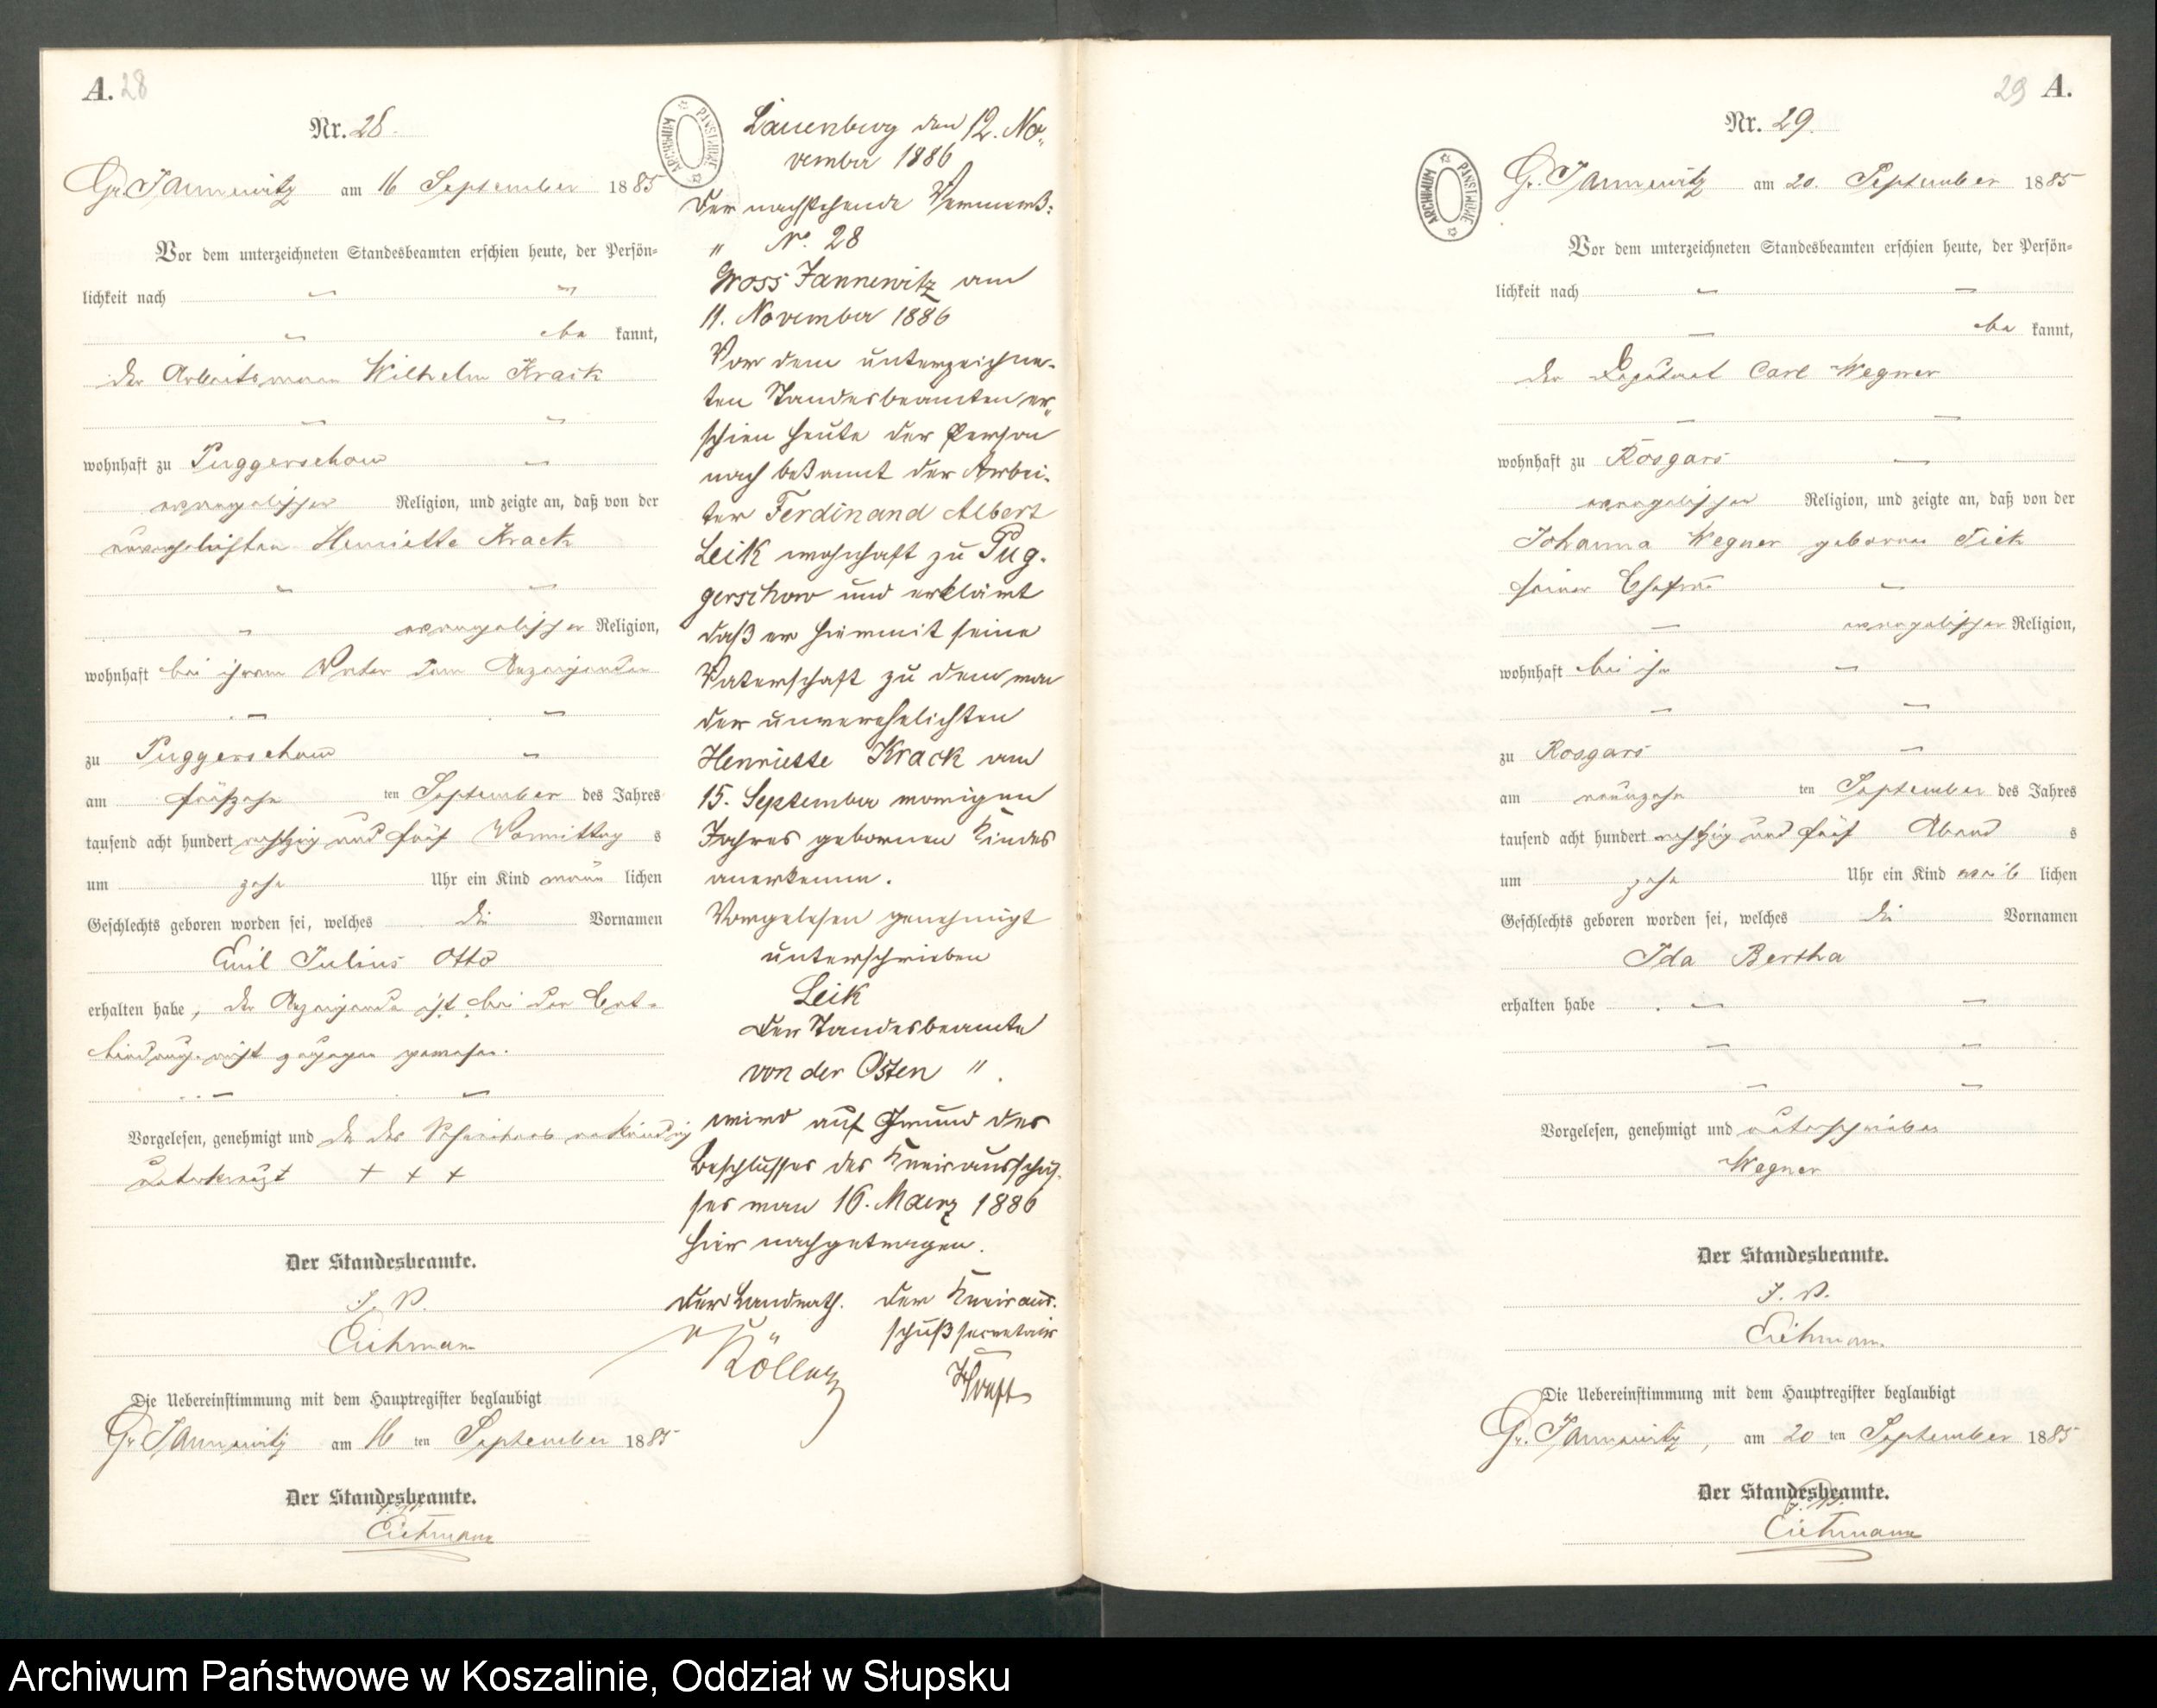 A. 28
Nr. 28.
Gr. Jannewitz am 16 September 1885
Vor dem unterzeichneten Standesbeamten erschien heute, der Persön-
lichkeit nach
be kannt,
der Arbeitsmann Wilhelm Krack
wohnhaft zu Puggerschow
evangelischer Religion, und zeigte an, daß von der
unverehelichten Henriette Krack
evangelischer Religion,
wohnhaft bei ihrem Vater dem Anzeigenden
zu Puggerschow
am fünfzehn ten September des Jahres
tausend acht hundert achtzig und fünf Vormittag s
um zehn Uhr ein Kind männ lichen
Geschlechts geboren worden sei, welches die Vornamen
Emil Julius Otto
erhalten habe, der Anzeigende ist bei der Ent-
bindung nicht zugegen gewesen.
Vorgelesen, genehmigt und da des Schreibens unkundig
unterkreuzt + + +
Der Standesbeamte.
J. V.
Eichmann
Die Uebereinstimmung mit dem Hauptregister beglaubigt
Gr. Jannewitz am 16 ten September 1885
Der Standesbeamte.
J. V.
Eichmann
ARCHIWUM PAŃSTWOWE
Lauenburg den 12. No-
vember 1886
Der nachstehende Vermerk:
" No. 28
Gross Jannewitz am
11. November 1886
Vor dem unterzeichne-
ten Standesbeamten er-
schien heute der Person
nach bekannt der Arbei-
ter Ferdinand Albert
Leik wohnhaft zu Pug-
gerschow und erklärt
daß er hiermit seine
Vaterschaft zu dem von
der unverehelichten
Henriette Krack am
15. September vorigen
Jahres gebornen Kindes
anerkenne.
Vorgelesen genehmigt
unterschrieben
Leik
Der Standesbeamte
von der Osten ".
wird auf Grund des
Beschlusses des Kreisausschus-
ses vom 16. Maerz 1886
hier nachgetragen.
Der Landrath. Der Kreisaus-
schuß secretair
v Köller
29 A.
Nr. 29.
ARCHIWUM PAŃSTWOWE
Gr. Jannewitz am 20. September 1885
Vor dem unterzeichneten Standesbeamten erschien heute, der Persön-
lichkeit nach
be kannt,
der Deputant Carl Wegner
wohnhaft zu Rosgars
evangelischer Religion, und zeigte an, daß von der
Johanna Wegner geborene Fick
seiner Ehefrau
evangelischer Religion,
wohnhaft bei ihm
zu Rosgars
am neunzehn ten September des Jahres
tausend acht hundert achtzig und fünf Abend s
um zehn Uhr ein Kind weib lichen
Geschlechts geboren worden sei, welches die Vornamen
Ida Bertha
erhalten habe
Vorgelesen, genehmigt und unterschrieben
Wegner
Der Standesbeamte.
J. V.
Eichmann.
Die Uebereinstimmung mit dem Hauptregister beglaubigt
Gr. Jannewitz, am 20 ten September 1885
Der Standesbeamte.
J. V.
Eichmann
Archiwum Państwowe w Koszalinie, Oddział w Słupsku